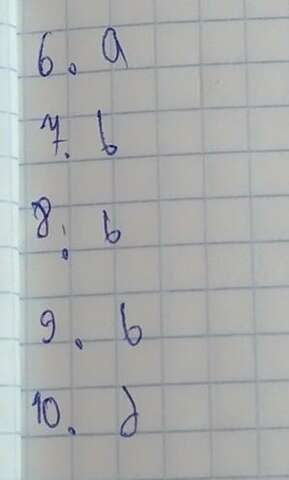 6. a
7. b
8. b
9. b
10. d